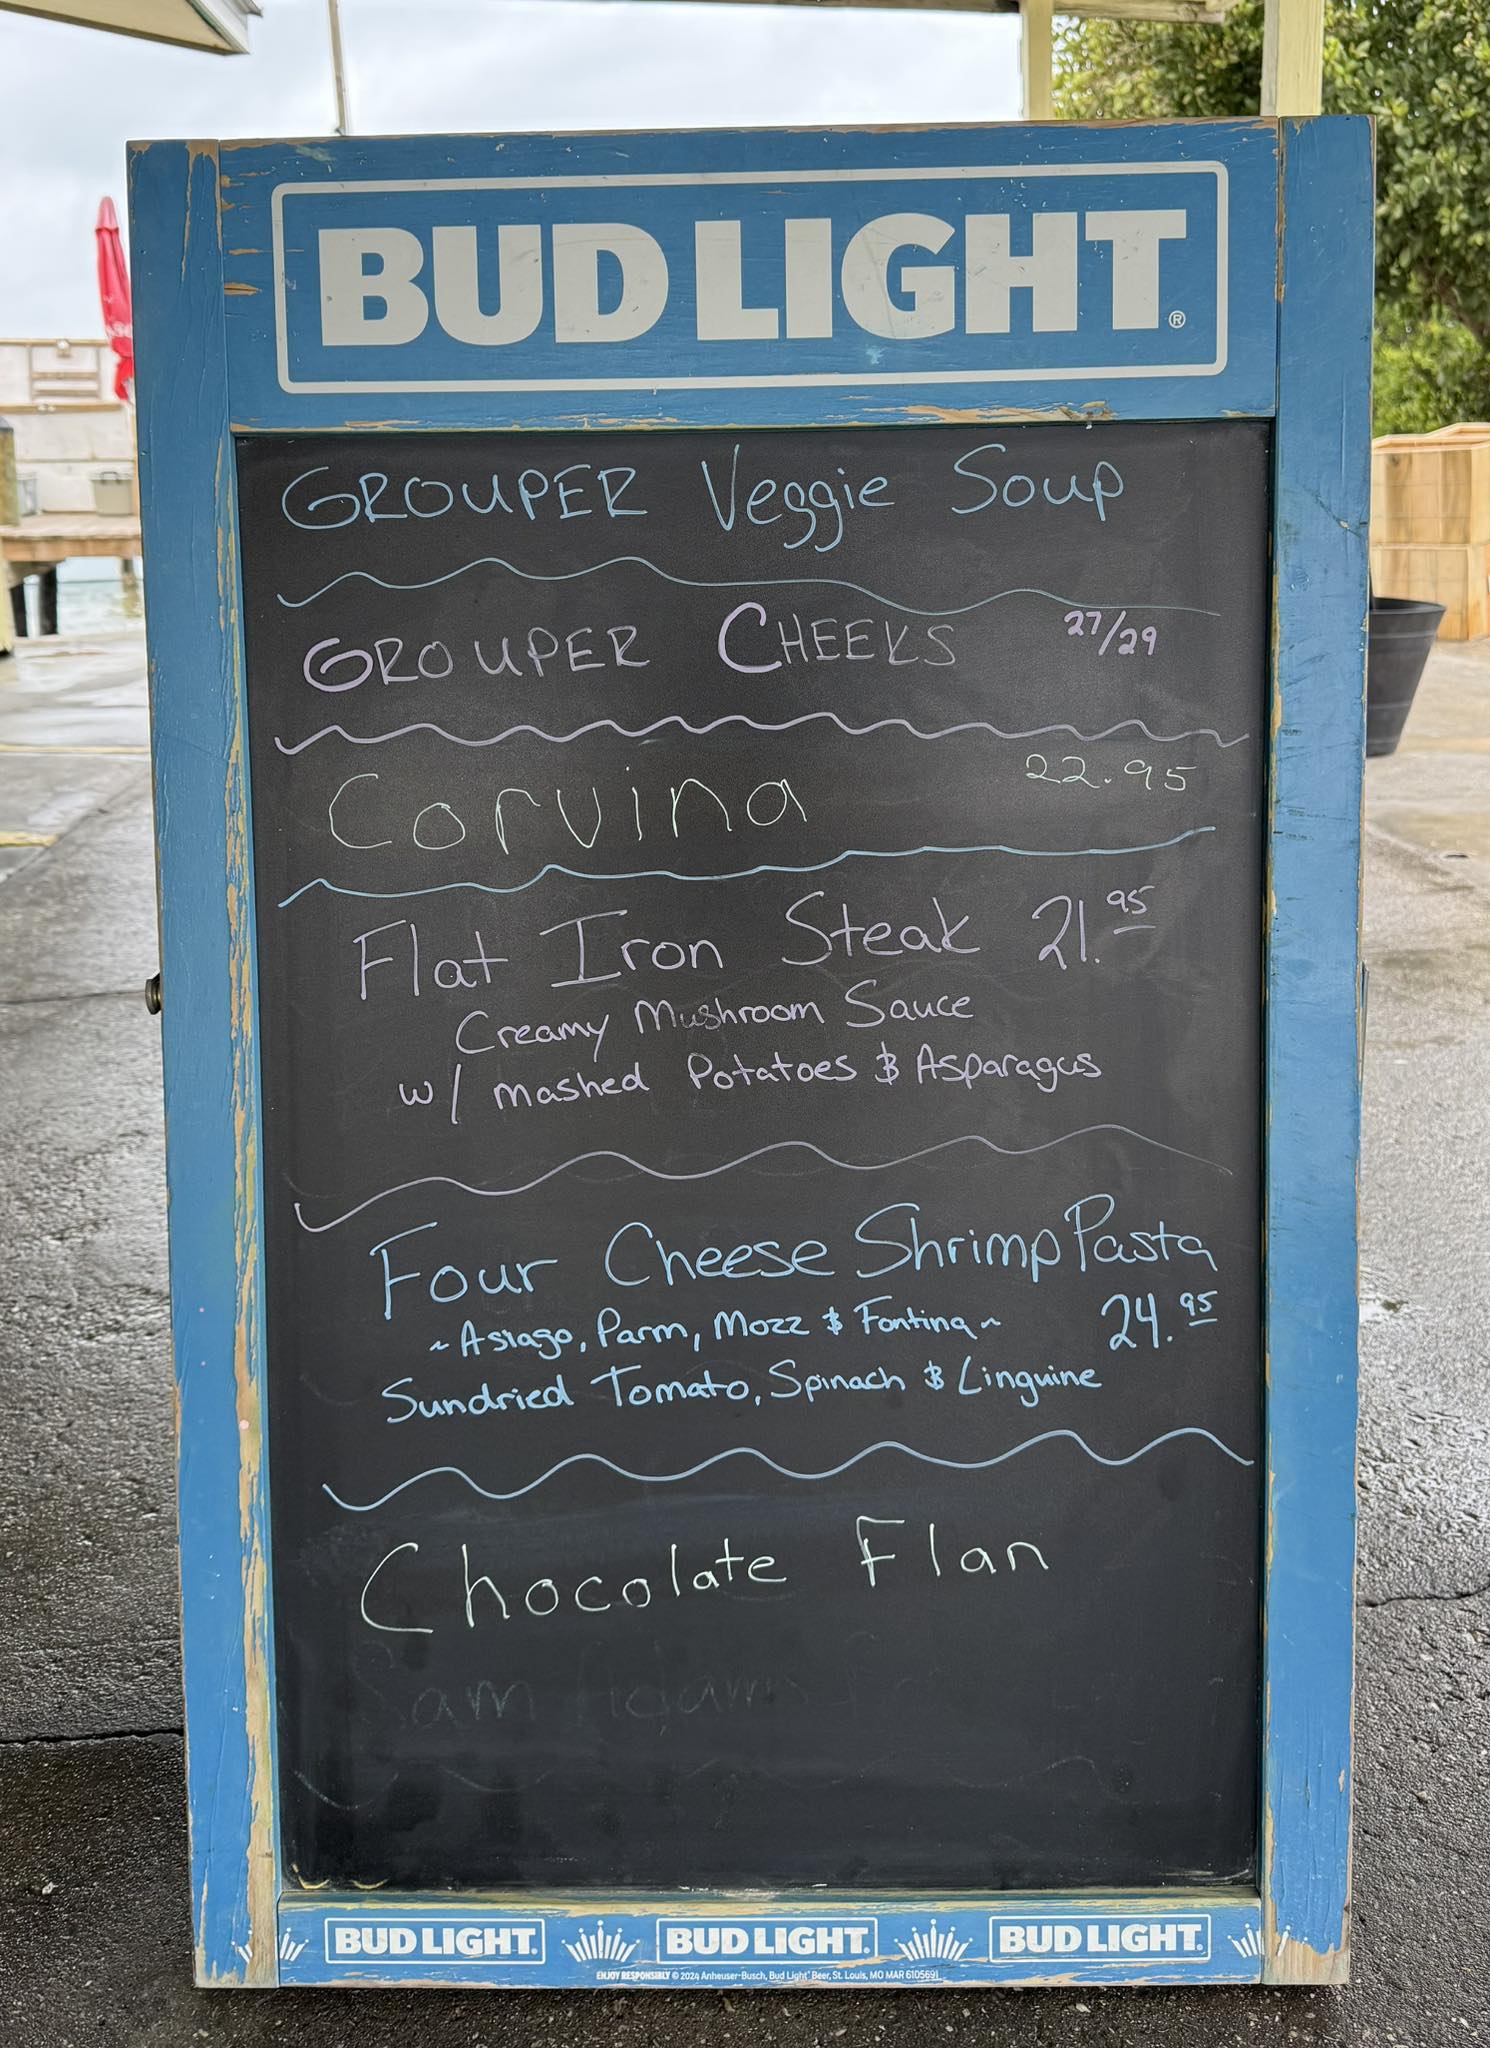 BUD LIGHT®
GROUPER Veggie Soup
GROUPER CHEEKS 27/29
Corvina 22.95
Flat Iron Steak 21.95
Creamy Mushroom Sauce
w/ mashed Potatoes & Asparagus
Four Cheese Shrimp Pasta
~Asiago, Parm, Mozz & Fontina~ 24.95
Sundried Tomato, Spinach & Linguine
Chocolate Flan
Sam Adams
BUD LIGHT. BUD LIGHT. BUD LIGHT.
ENJOY RESPONSIBLY © 2024 Anheuser-Busch, Bud Light® Beer, St. Louis, MO MAR 6105691